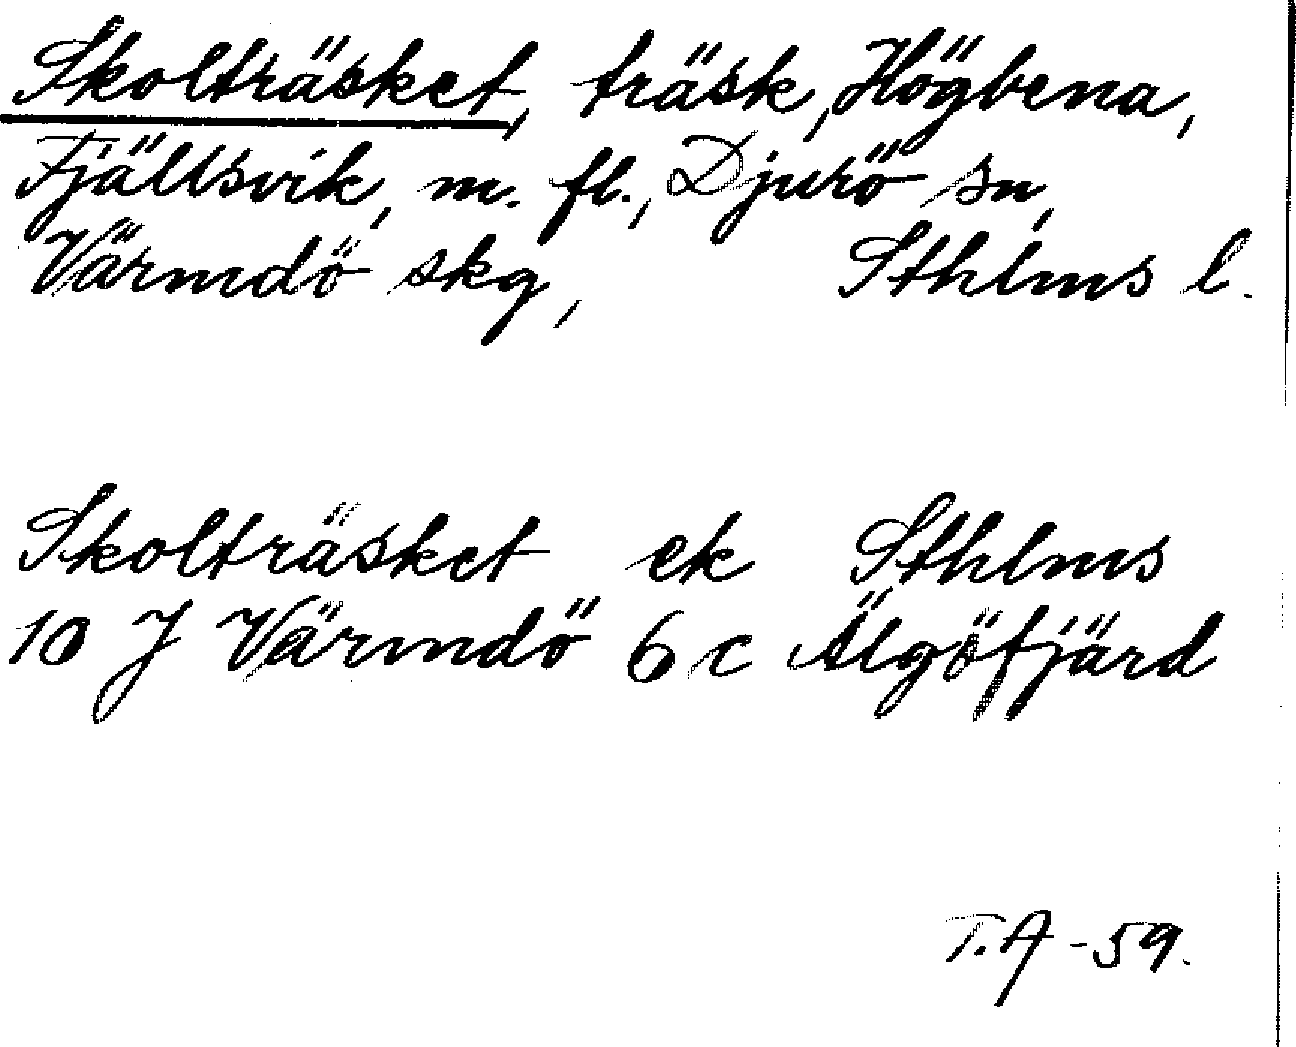 Skolträsket, träsk, Högbena,
Fjällsvik, m. fl., Djurö sn,
Värmdö skg, Sthlms l.
Skolträsket ek Sthlms
10 J Värmdö 6 c Älgöfjärd
T.A -59.